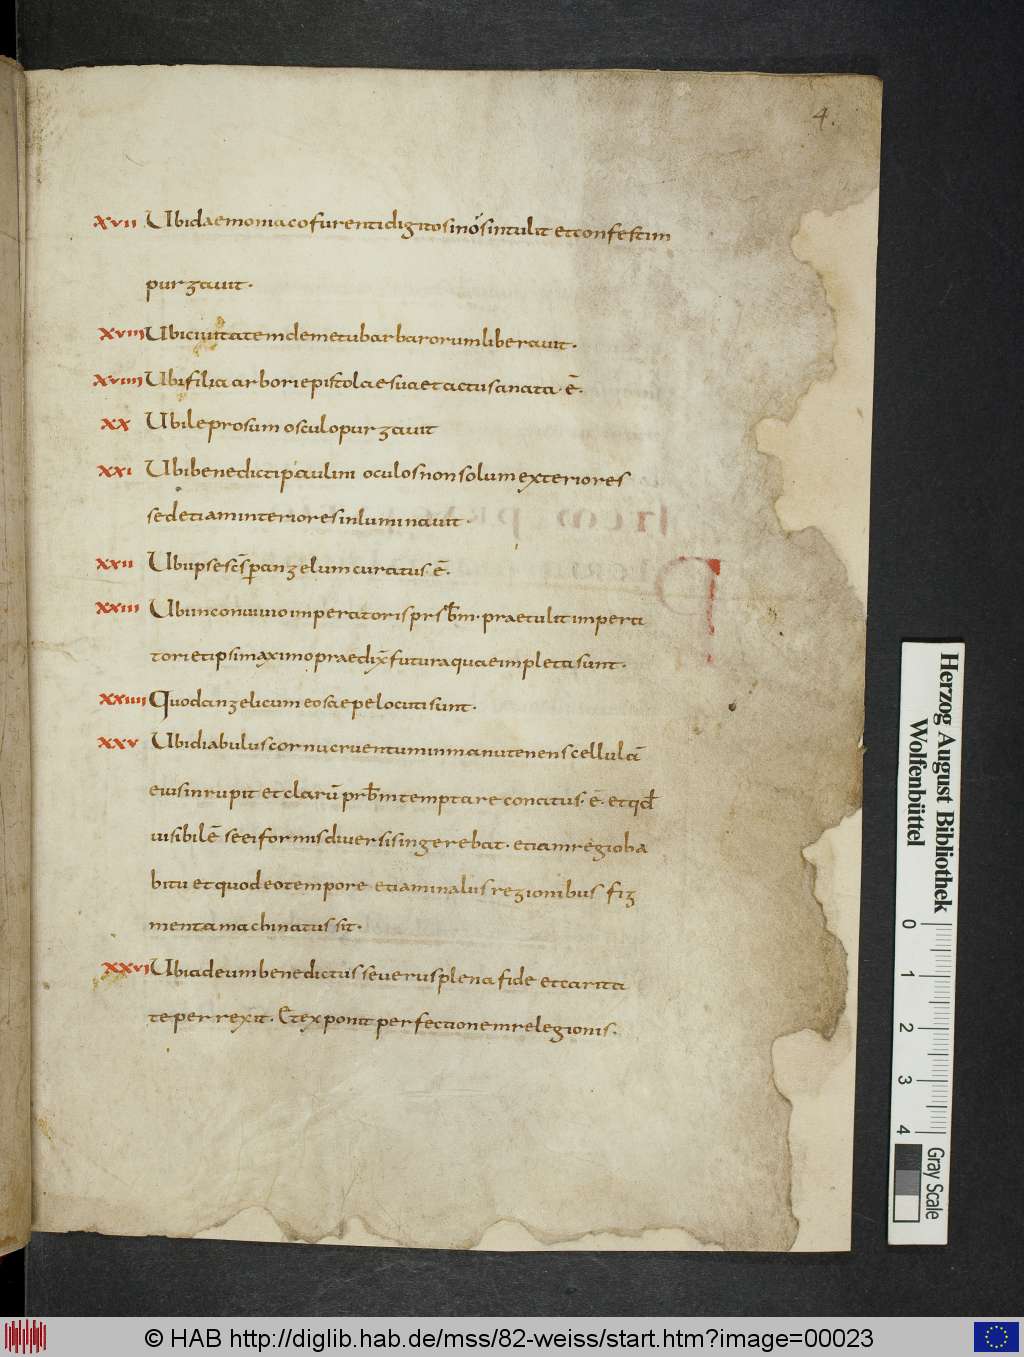 4.
XVII Ubi daemoniaco furenti digitos in os intulit et confestim
purgavit.
XVIII Ubi civitatem de metu barbarorum liberavit.
XVIIII Ubi filia arbori epistolae suae tactu sanata ē.
XX Ubi leprosum osculo purgavit
XXI Ubi benedicti paulini oculos non solum exteriores
sed etiam interiores inluminavit.
XXII Ubi ipse sc̄s p̄ angelum curatus ē.
XXIII Ubi in convivio imperatoris prsb̄m praetulit impera
tori et ipsi maximo praedix̄ futura quae impleta sunt.
XXIIII Quod angeli cum eo saepe locuti sunt.
XXV Ubi diabulus cornu cruentum in manu tenens cellulā
eius inrupit et clarū prb̄m temptare conatus ē. et qd̄
visibilē se ei formis diversis ingerebat. etiam regio ha
bitu et quod eo tempore etiam in alus regionibus fig
menta machinatus sit.
XXVI Ubi ad eum benedictus severus plena fide et carita
te perrexit. Et exponit perfectionem relegionis.
Herzog August Bibliothek
Wolfenbüttel
0 1 2 3 4
Gray Scale
© HAB http://diglib.hab.de/mss/82-weiss/start.htm?image=00023